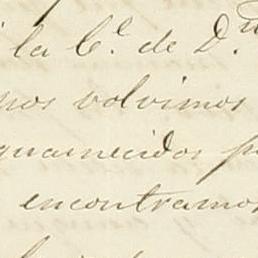 la C.e de D.n
nos volvimos
guarnecidos p
encontramos